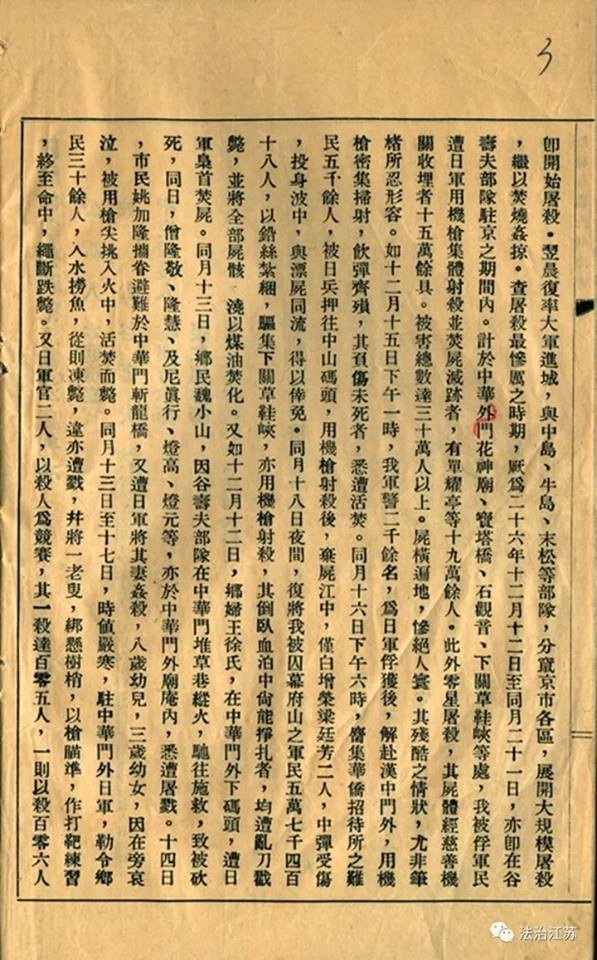 3
卽開始屠殺。翌晨復率大軍進城，與中島、牛島、末松等部隊，分竄京市各區，展開大規模屠殺
，繼以焚燒姦掠。查屠殺最慘厲之時期，厥爲二十六年十二月十二日至同月二十一日，亦卽在谷
壽夫部隊駐京之期間內。計於中華外門花神廟、寶塔橋、石觀音、下關草鞋峽等處，我被俘軍民
遭日軍用機槍集體射殺並焚屍滅跡者，有單耀亭等十九萬餘人。此外零星屠殺，其屍體經慈善機
關收埋者十五萬餘具。被害總數達三十萬人以上。屍橫遍地，慘絕人寰。其殘酷之情狀，尤非筆
楮所忍形容。如十二月十五日下午一時，我軍警二千餘名，爲日軍俘獲後，解赴漢中門外，用機
槍密集掃射，飲彈齊殞，其負傷未死者，悉遭活焚。同月十六日下午六時，麕集華僑招待所之難
民五千餘人，被日兵押往中山碼頭，用機槍射殺後，棄屍江中，僅白增榮梁廷芳二人，中彈受傷
，投身波中，與漂屍同流，得以倖免。同月十八日夜間，復將我被囚幕府山之軍民五萬七千四百
十八人，以鉛絲紮綑，驅集下關草鞋峽，亦用機槍射殺，其倒臥血泊中尙能掙扎者，均遭亂刀戳
斃，並將全部屍骸 澆以煤油焚化。又如十二月十二日，鄉婦王徐氏，在中華門外下碼頭，遭日
軍梟首焚屍。同月十三日，鄉民魏小山，因谷壽夫部隊在中華門堆草巷縱火，馳往施救，致被砍
死，同日，僧隆敬、隆慧、及尼眞行、燈高、燈元等，亦於中華門外廟庵內，悉遭屠戮。十四日
，市民姚加隆攜眷避難於中華門斬龍橋，又遭日軍將其妻姦殺，八歲幼兒，三歲幼女，因在旁哀
泣，被用槍尖挑入火中，活焚而斃。同月十三日至十七日，時値嚴寒，駐中華門外日軍，勒令鄉
民三十餘人，入水撈魚，從則凍斃，違亦遭戮，幷將一老叟，綁懸樹梢，以槍瞄準，作打靶練習
，終至命中，繩斷跌斃。又日軍官二人，以殺人爲競賽，其一殺達百零五人，一則以殺百零六人
法治江苏